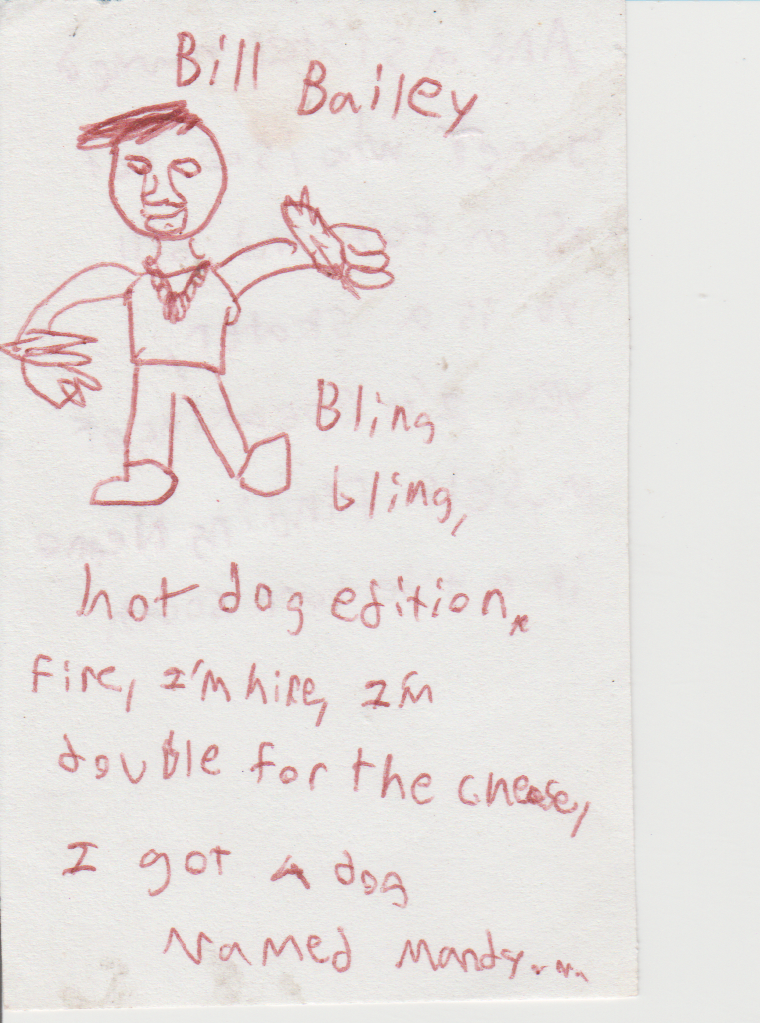 Bill Bailey
Bling
bling,
hot dog edition.
Fire, I'm hire, I'm
double for the cheese,
I got a dog
Named Mandy....